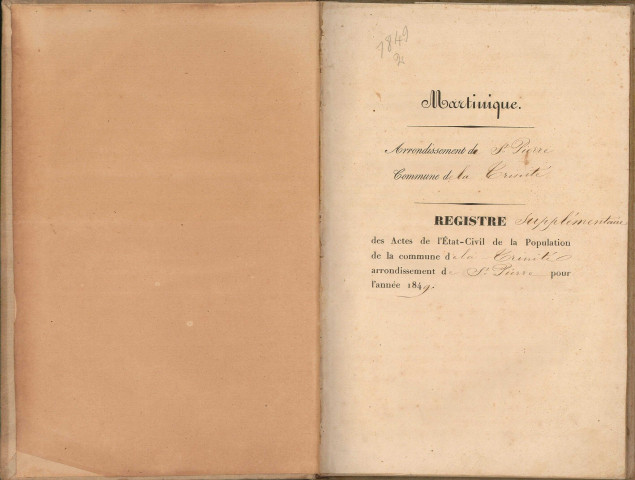 1849
2
Martinique.
Arrondissement de St. Pierre
Commune de la Trinité
REGISTRE Supplémentaire
des Actes de l'État-Civil de la Population
de la commune de la Trinité
arrondissement de St. Pierre pour
l'année 1849.